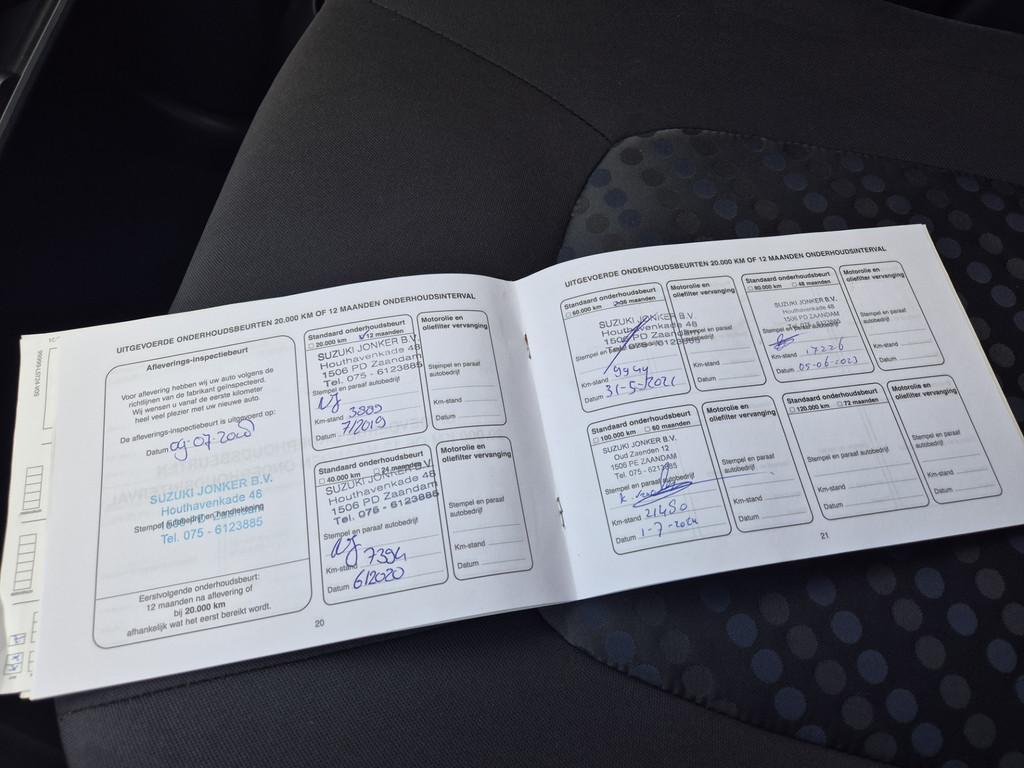 UITGEVOERDE ONDERHOUDSBEURTEN 20.000 KM OF 12 MAANDEN ONDERHOUDSINTERVAL
Afleverings-inspectiebeurt
Voor aflevering hebben wij uw auto volgens de
richtlijnen van de fabrikant geïnspecteerd.
Wij wensen u vanaf de eerste kilometer
heel veel plezier met uw nieuwe auto.
De afleverings-inspectiebeurt is uitgevoerd op:
Datum 09-07-2018
SUZUKI JONKER B.V.
Houthavenkade 48
Stempel autobedrijf en handtekening
Tel. 075 - 6123885
Eerstvolgende onderhoudsbeurt:
12 maanden na aflevering of
bij 20.000 km
afhankelijk wat het eerst bereikt wordt.
Standaard onderhoudsbeurt
20.000 km 12 maanden
SUZUKI JONKER B.V.
Houthavenkade 48
1506 PD Zaandam
Tel. 075 - 6123885
Stempel en paraaf autobedrijf
Km-stand 3889
Datum 7/2019
Motorolie en
oliefilter vervanging
Stempel en paraaf
autobedrijf
Km-stand
Datum
Standaard onderhoudsbeurt
40.000 km 24 maanden
SUZUKI JONKER B.V.
Houthavenkade 48
1506 PD Zaandam
Tel. 075 - 6123885
Stempel en paraaf autobedrijf
Km-stand 7394
Datum 6/2020
Motorolie en
oliefilter vervanging
Stempel en paraaf
autobedrijf
Km-stand
Datum
20
UITGEVOERDE ONDERHOUDSBEURTEN 20.000 KM OF 12 MAANDEN ONDERHOUDSINTERVAL
Standaard onderhoudsbeurt
60.000 km 36 maanden
SUZUKI JONKER B.V.
Houthavenkade 48
1506 PD Zaandam
Km-stand 9944
Datum 31-5-2021
Motorolie en
oliefilter vervanging
Stempel en paraaf
autobedrijf
Km-stand
Datum
Standaard onderhoudsbeurt
80.000 km 48 maanden
SUZUKI JONKER B.V.
Houthavenkade 48
1506 PD ZAANDAM
Stempel en paraaf autobedrijf
Km-stand 17226
Datum 05-06-2023
Motorolie en
oliefilter vervanging
Stempel en paraaf
autobedrijf
Km-stand
Datum
Standaard onderhoudsbeurt
100.000 km 60 maanden
SUZUKI JONKER B.V.
Oud Zaenden 12
1506 PE ZAANDAM
Tel. 075 - 6123885
Stempel en paraaf autobedrijf
Km-stand 21480
Datum 1-7-2024
Motorolie en
oliefilter vervanging
Stempel en paraaf
autobedrijf
Km-stand
Datum
Standaard onderhoudsbeurt
120.000 km 72 maanden
Stempel en paraaf autobedrijf
Km-stand
Datum
Motorolie en
oliefilter vervanging
Stempel en paraaf
autobedrijf
Km-stand
Datum
21